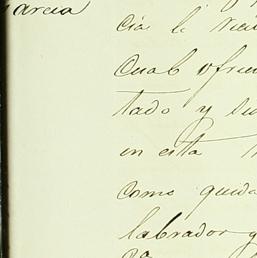 García
cia l
cual ofrec
tado y su
en esta
como queda
labrador q